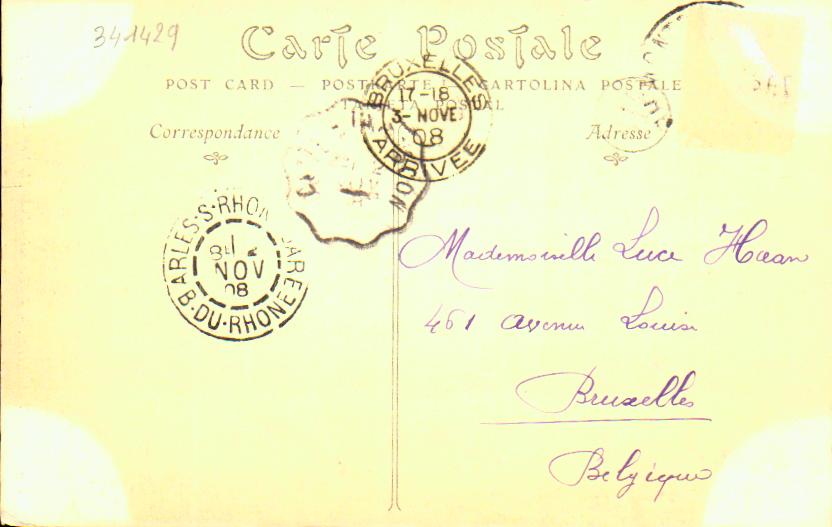 341429
Carte Postale
POST CARD — POSTKARTE — CARTOLINA POSTALE
TARJETA POSTAL
Correspondance
Adresse
BRUXELLES
17-18
3- NOVE
08
ARRIVÉE
ARLES·S·RHON GARE
NOV
08
B·DU·RHONE
Mademoiselle Luce Haan
461 avenue Louise
Bruxelles
Belgique